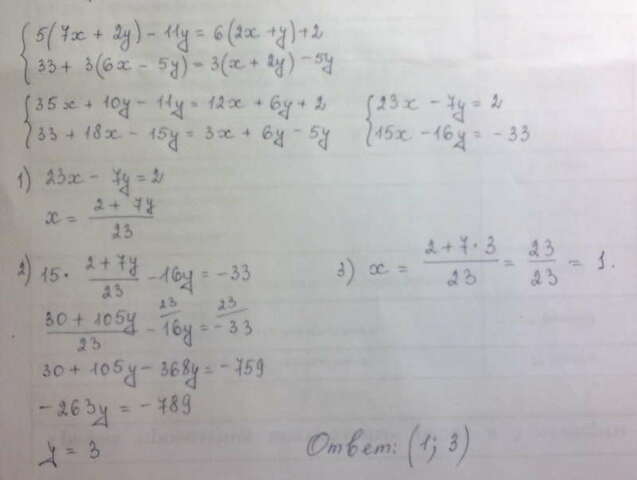 5(7x + 2y) - 11y = 6(2x+y)+2
33 + 3(6x - 5y) = 3(x + 2y) - 5y
35x + 10y - 11y = 12x + 6y + 2
33 + 18x - 15y = 3x + 6y - 5y
23x - 7y = 2
15x - 16y = - 33
1) 23x - 7y = 2
x = (2 + 7y)/23
2) 15 · (2 + 7y)/23 - 16y = -33
(30 + 105y)/23 - 16y 23 = - 33 23
30 + 105y - 368y = - 759
- 263y = - 789
y = 3
3) x = (2 + 7 · 3)/23 = 23/23 = 1.
Ответ: (1; 3)